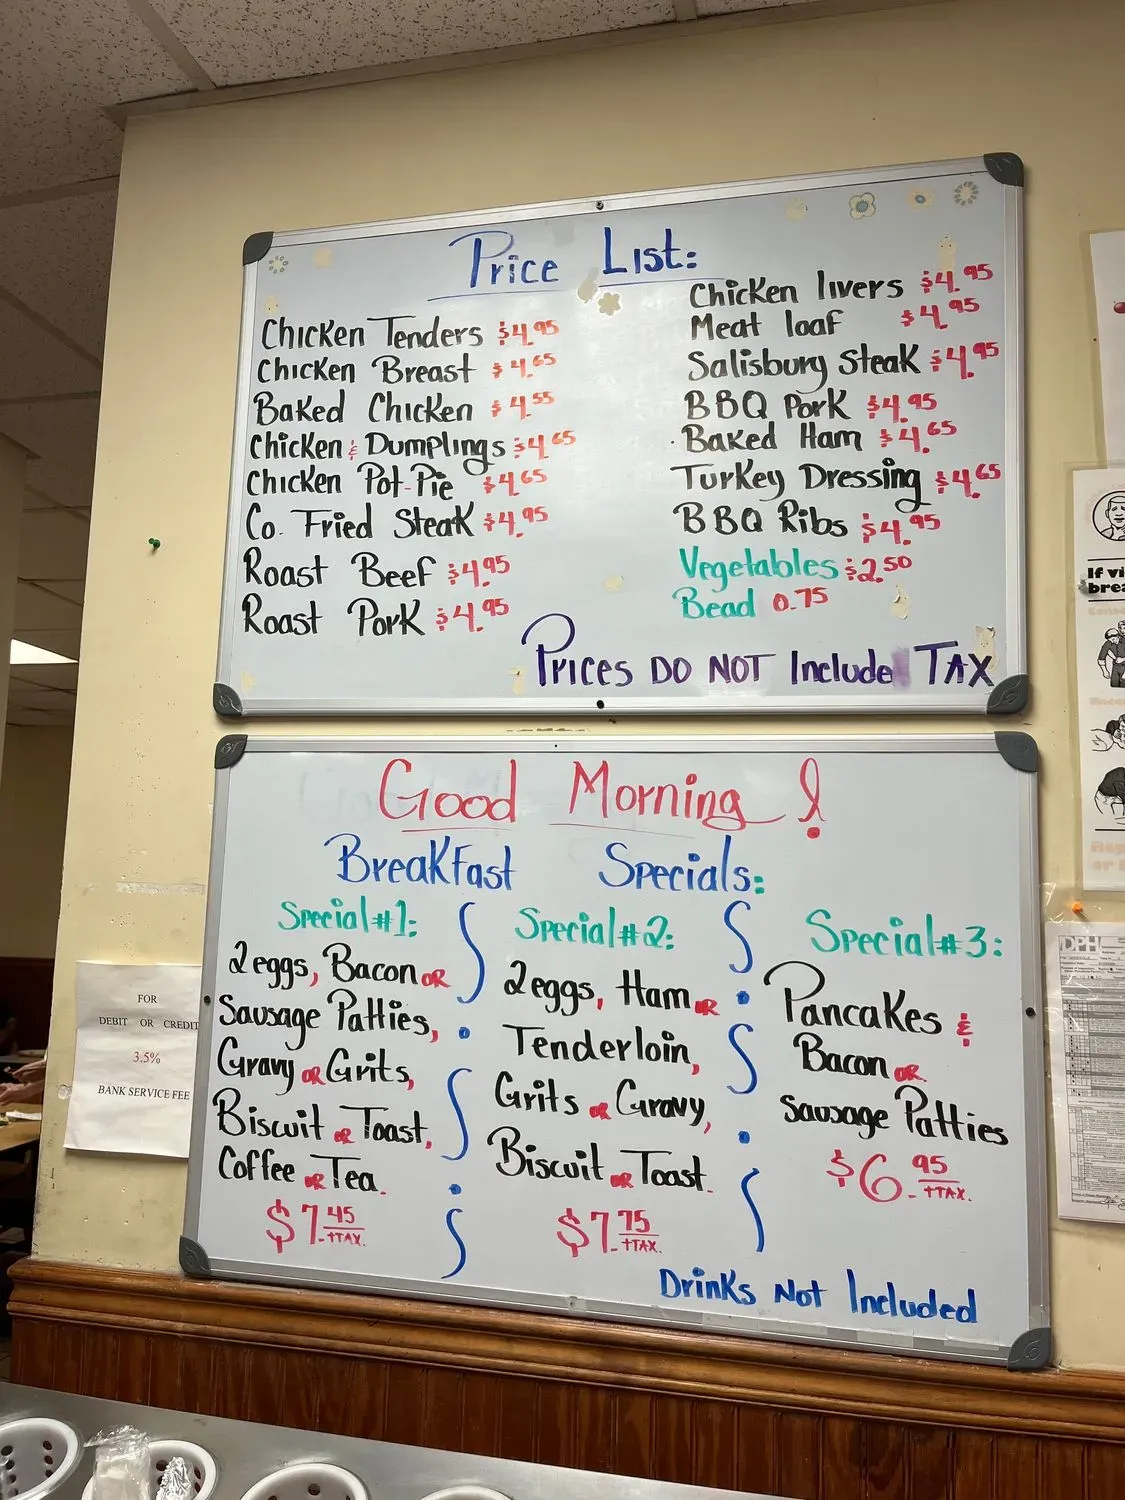 Price List:
Chicken Tenders $4.95
Chicken Breast $4.65
Baked Chicken $4.55
Chicken & Dumplings $4.65
Chicken Pot-Pie $4.65
Co. Fried Steak $4.95
Roast Beef $4.95
Roast Pork $4.95
Chicken livers $4.95
Meat loaf $4.95
Salisbury Steak $4.95
BBQ Pork $4.95
Baked Ham $4.65
Turkey Dressing $4.65
BBQ Ribs $4.95
Vegetables $2.50
Bead 0.75
Prices DO NOT Include TAX
Good Morning!
Breakfast Specials:
Special #1:
2 eggs, Bacon or
Sausage Patties,
Gravy or Grits,
Biscuit or Toast,
Coffee or Tea.
$7.45 +TAX.
Special #2:
2 eggs, Ham or
Tenderloin,
Grits or Gravy,
Biscuit or Toast.
$7.75 +TAX.
Special #3:
Pancakes &
Bacon or
Sausage Patties
$6.95 +TAX.
Drinks Not Included
FOR
DEBIT OR CREDIT
3.5%
BANK SERVICE FEE
If vi
brea
DPH